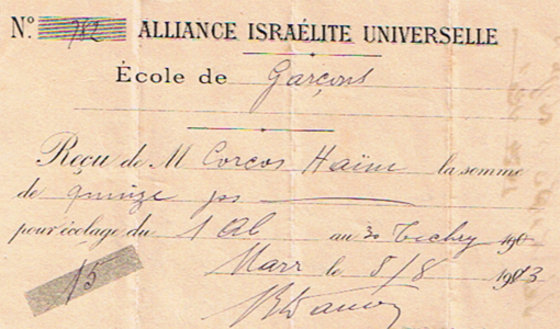 N.º 782 ALLIANCE ISRAÉLITE UNIVERSELLE
École de Garçons
Reçu de M Corcos Haïm la somme
de quinze ps
pour écolage du 1 Ab au 30 Tichry 190
15 Marr le 5/8 1913